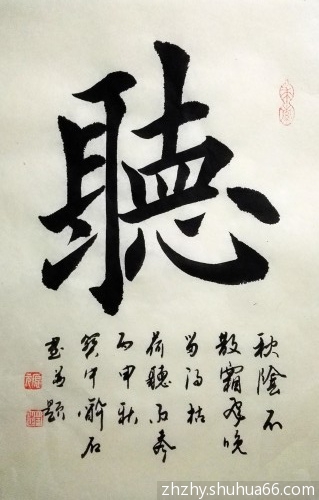 聽
秋陰不
散霜飛晚
留得枯
荷聽雨聲
丙申秋
石
題
zhzhy.shuhua66.com